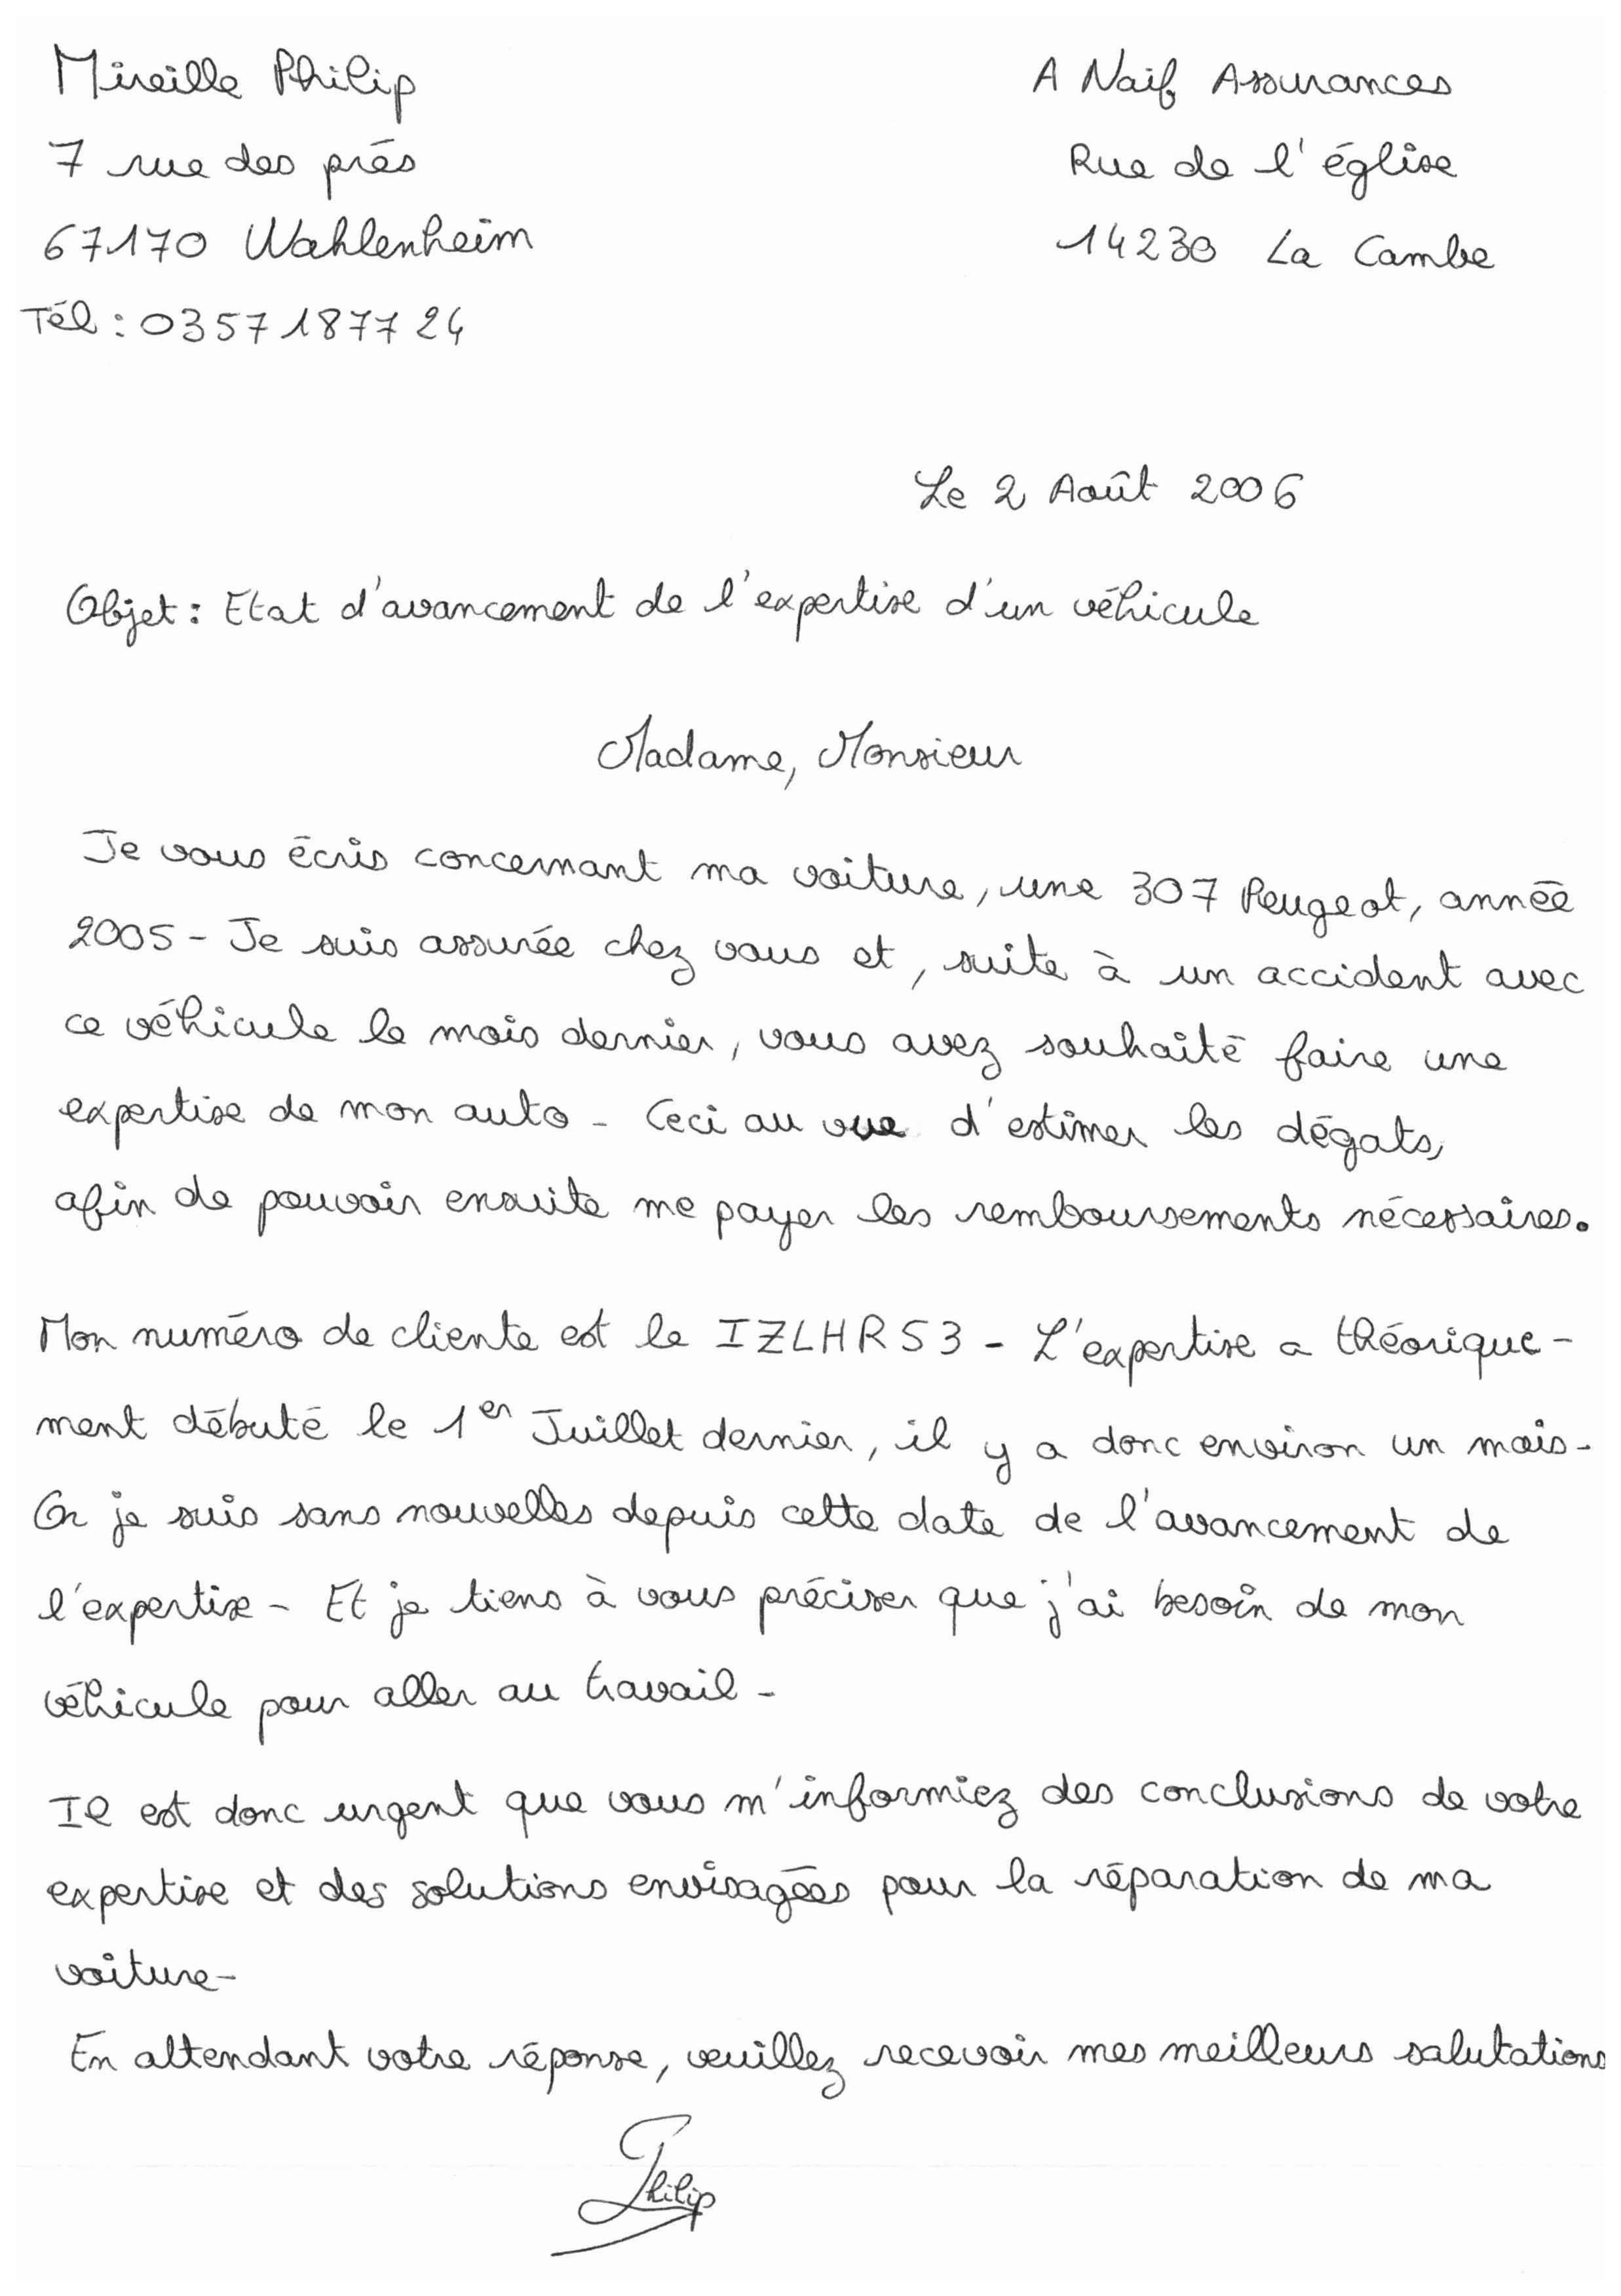 Mireille Philip
7 rue des prés
67170 Wahlenheim
Tél : 0357187724
A Naif Assurances
Rue de l'église
14230 La Cambe
Le 2 Août 2006
Objet : Etat d'avancement de l'expertise d'un véhicule
Madame, Monsieur
Je vous écris concernant ma voiture, une 307 Peugeot, année
2005 - Je suis assurée chez vous et, suite à un accident avec
ce véhicule le mois dernier, vous avez souhaité faire une
expertise de mon auto - Ceci au vue d'estimer les dégats,
afin de pouvoir ensuite me payer les remboursements nécessaires.
Mon numéro de cliente est le IZLHR53 - L'expertise a théorique-
ment débuté le 1er Juillet dernier, il y a donc environ un mois -
Or je suis sans nouvelles depuis cette date de l'avancement de
l'expertise - Et je tiens à vous préciser que j'ai besoin de mon
véhicule pour aller au travail -
Il est donc urgent que vous m'informiez des conclusions de votre
expertise et des solutions envisagées pour la réparation de ma
voiture -
En attendant votre réponse, veuillez recevoir mes meilleurs salutations
Philip